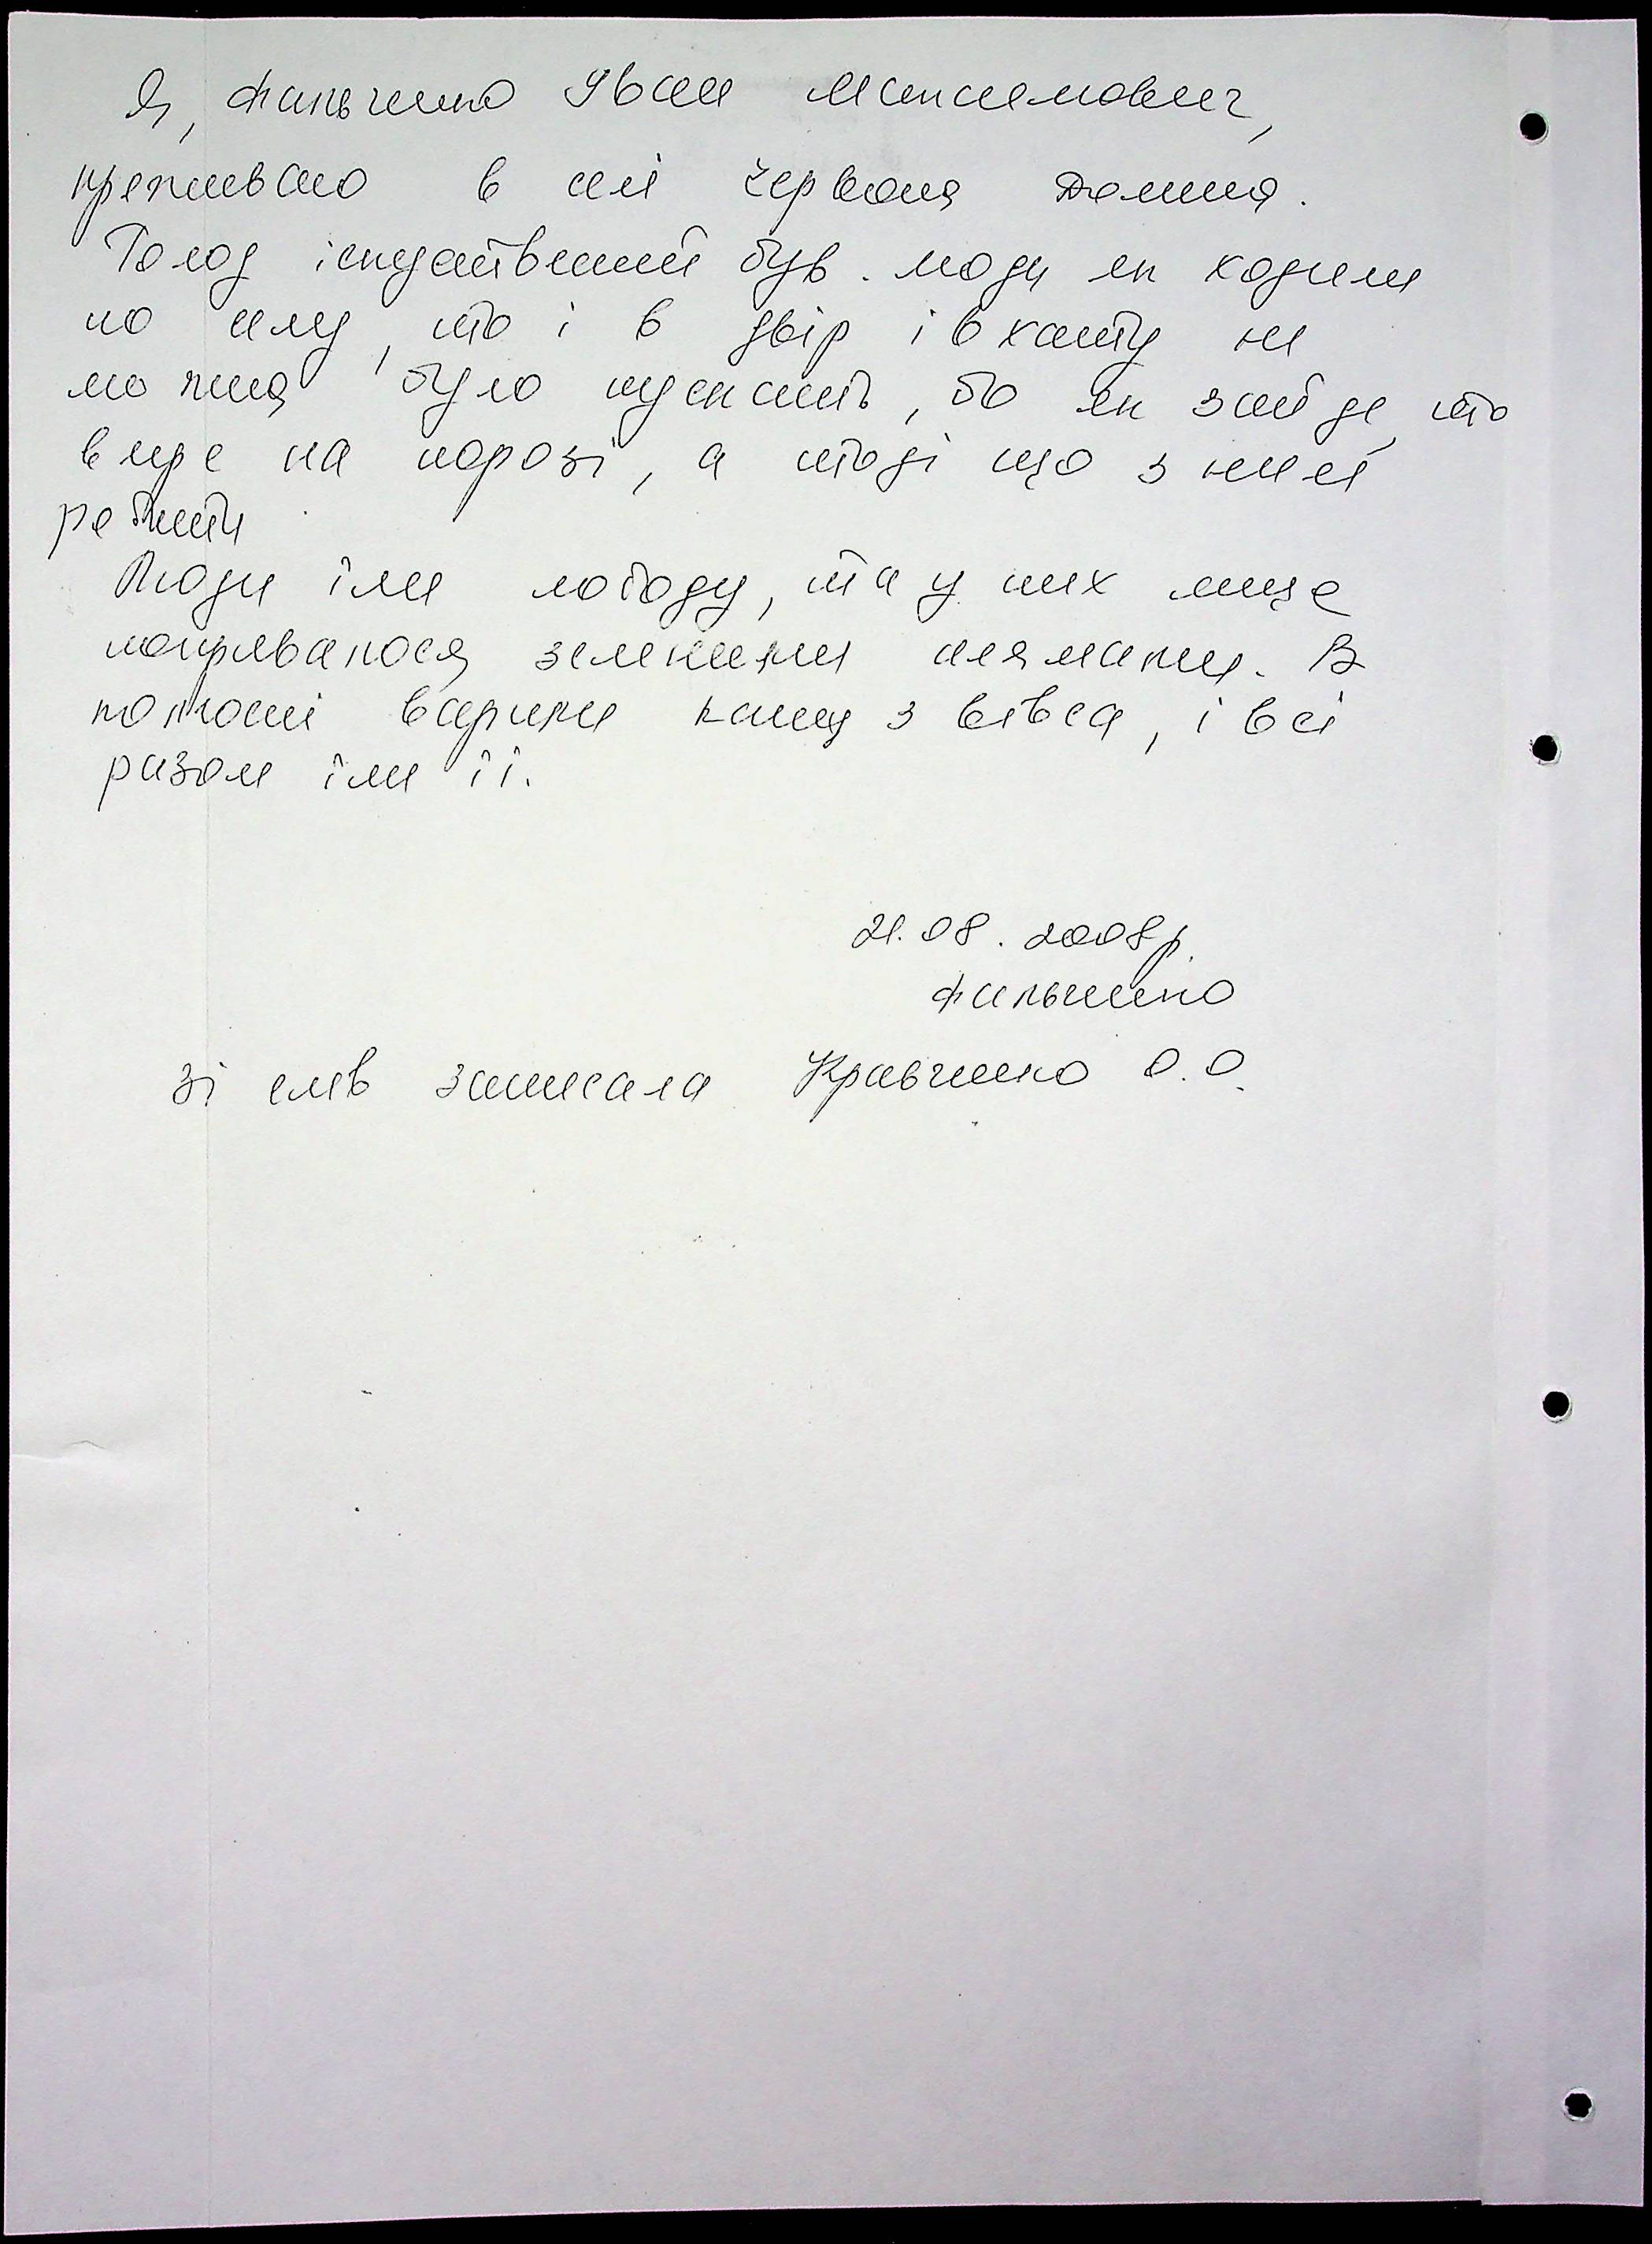 Я, Фальченко Іван Максимович,
проживаю в селі Червона Долина.
Голод іскуствений був. люди як ходили
по селу, то і в двір і в хату не
можна було пускать, бо як зайде, то
вмре на порозі, а тоді що з ними
робити
Люди їли лободу, та у них лице
покривалося зеленими плямами. В
колгоспі варили кашу з вівса, і всі
разом їли її.
21.08.2008р.
Фальченко
Зі слів записала Кравченко О.О.